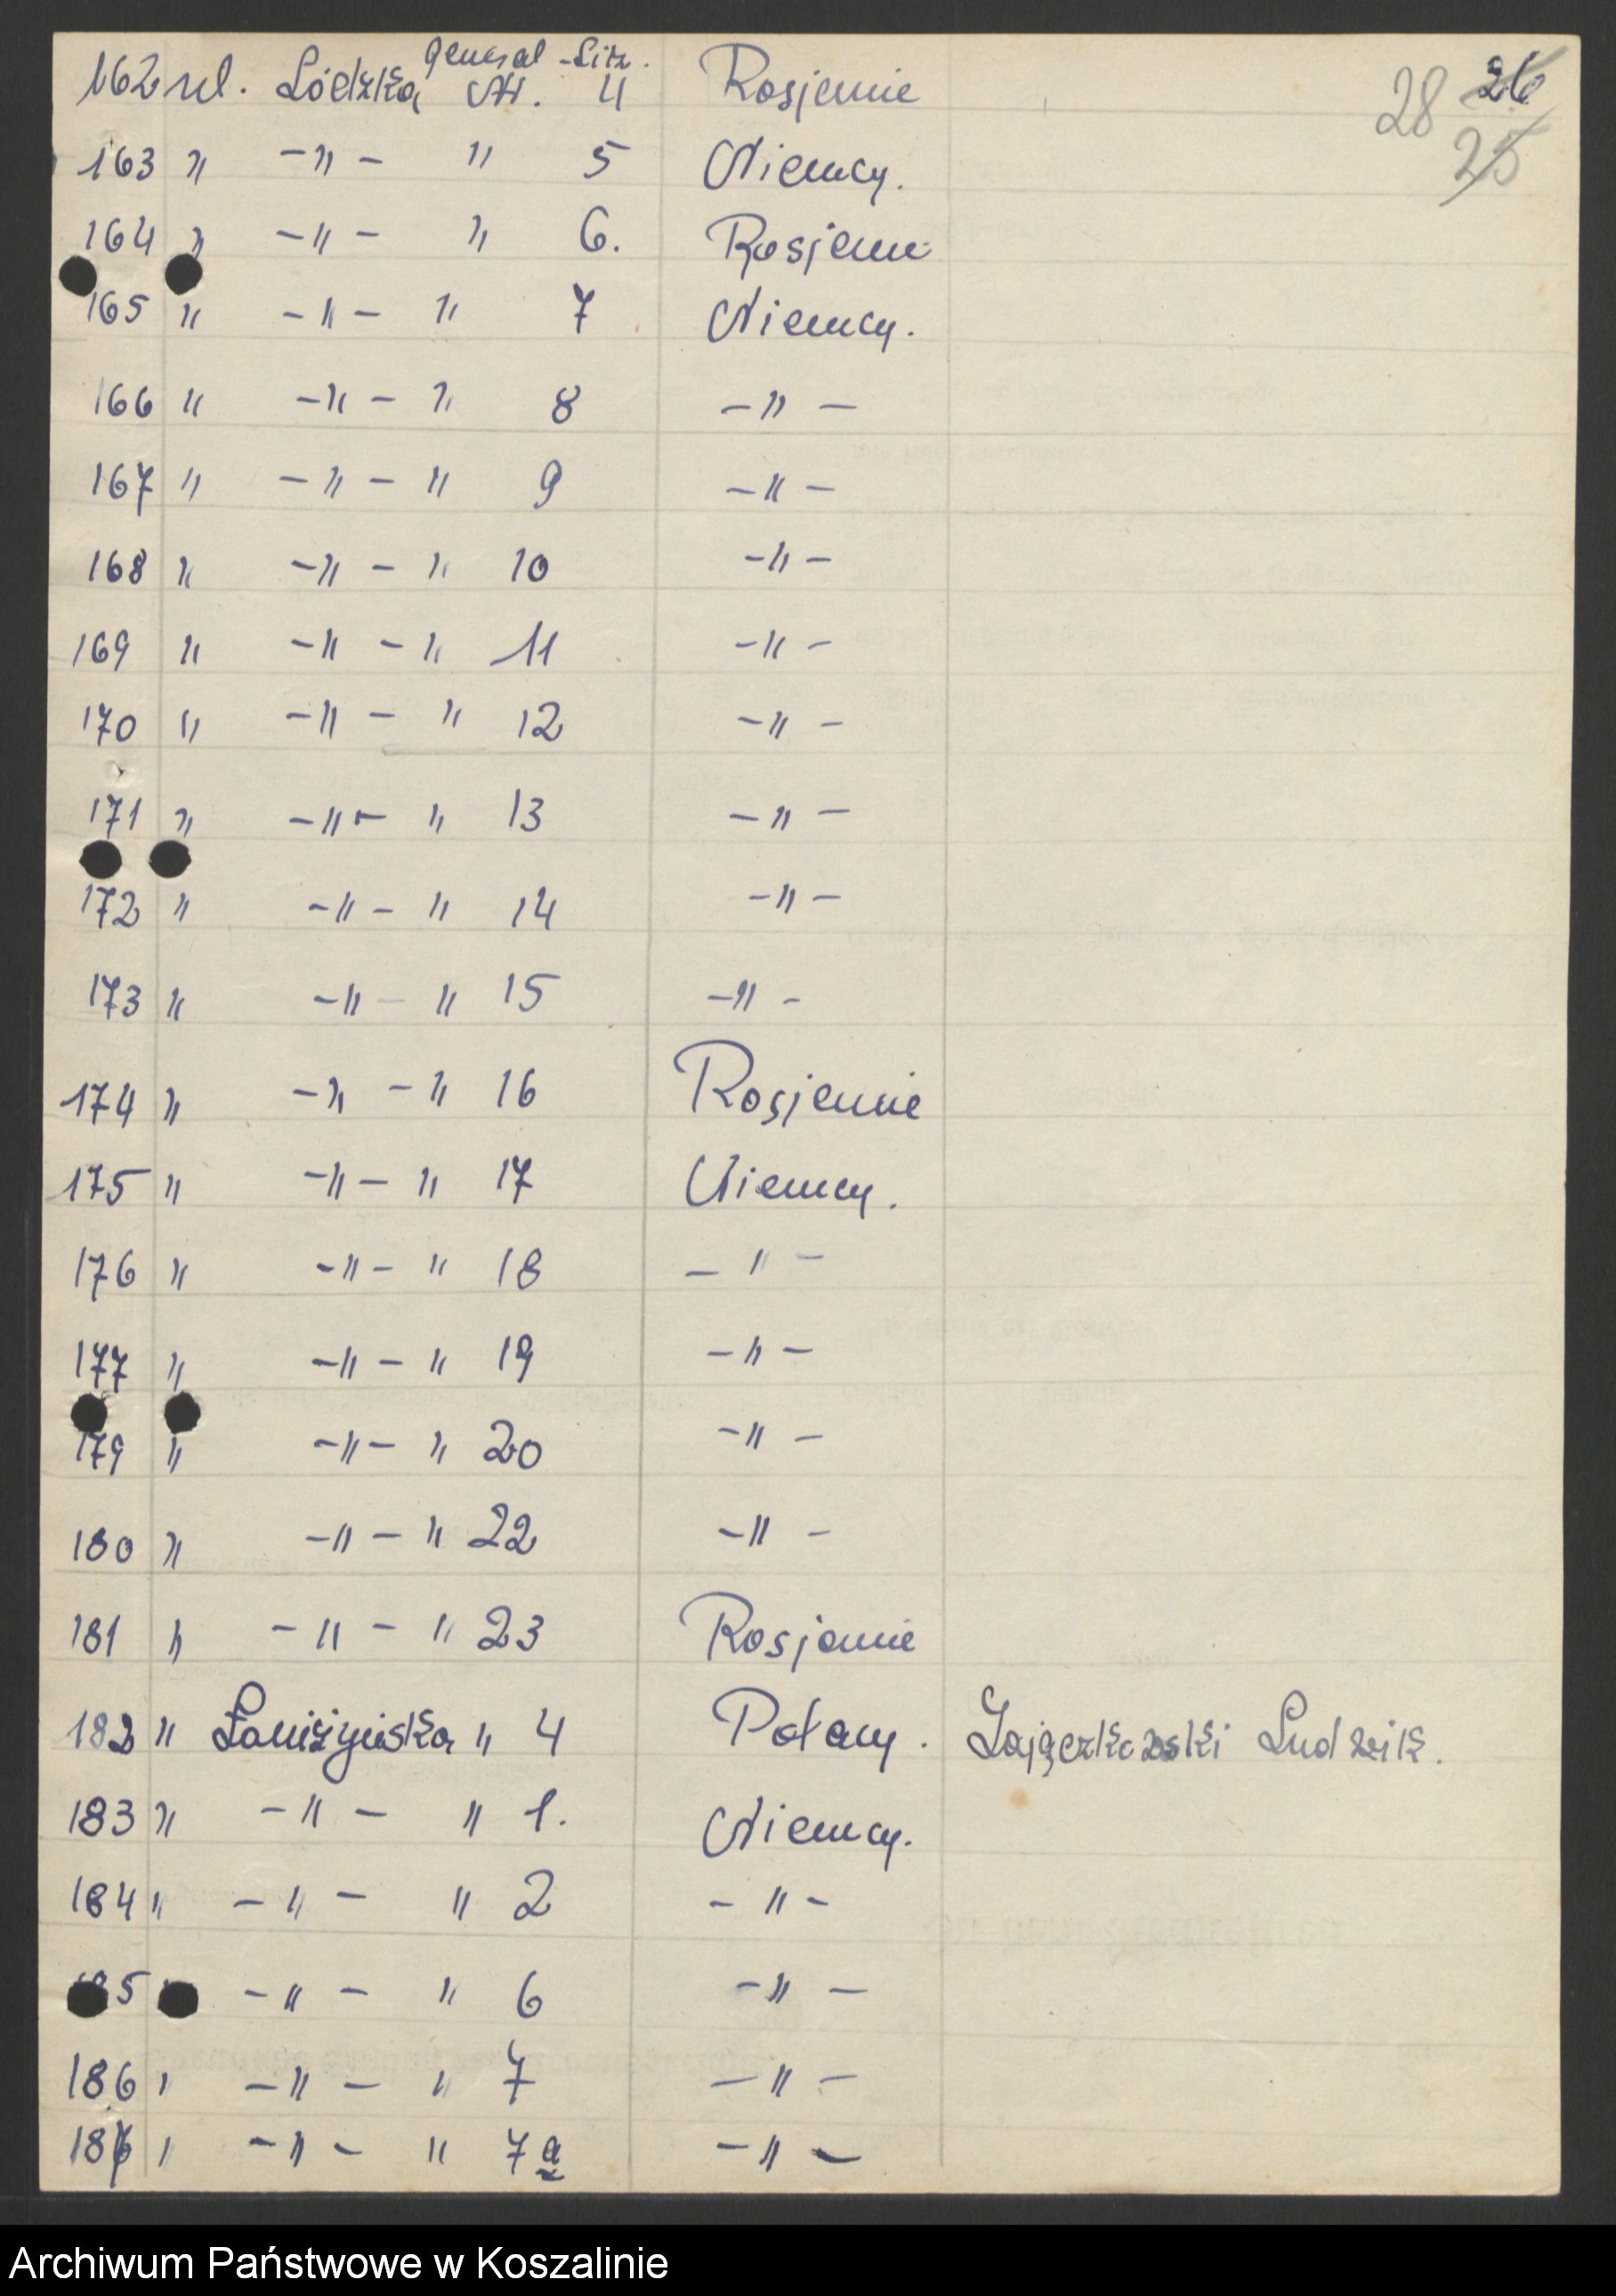 28 26
25
General-Litz.
162 ul. Łódzka Nr. 4 Rosjanie
163 " -"- " 5 Niemcy.
164 " -"- " 6. Rosjanie
165 " -"- " 7 Niemcy.
166 " -"- " 8 -"-
167 " -"- " 9 -"-
168 " -"- " 10 -"-
169 " -"- " 11 -"-
170 " -"- " 12 -"-
171 " -"- " 13 -"-
172 " -"- " 14 -"-
173 " -"- " 15 -"-
174 " -"- " 16 Rosjanie
175 " -"- " 17 Niemcy.
176 " -"- " 18 -"-
177 " -"- " 19 -"-
179 " -"- " 20 -"-
180 " -"- " 22 -"-
181 " -"- " 23 Rosjanie
182 " " 4 Polacy. Zajączkowski Ludwik.
183 " -"- " 1. Niemcy.
184 " -"- " 2 -"-
185 " -"- " 6 -"-
186 " -"- " 7 -"-
187 " -"- " 7a -"-
Archiwum Państwowe w Koszalinie